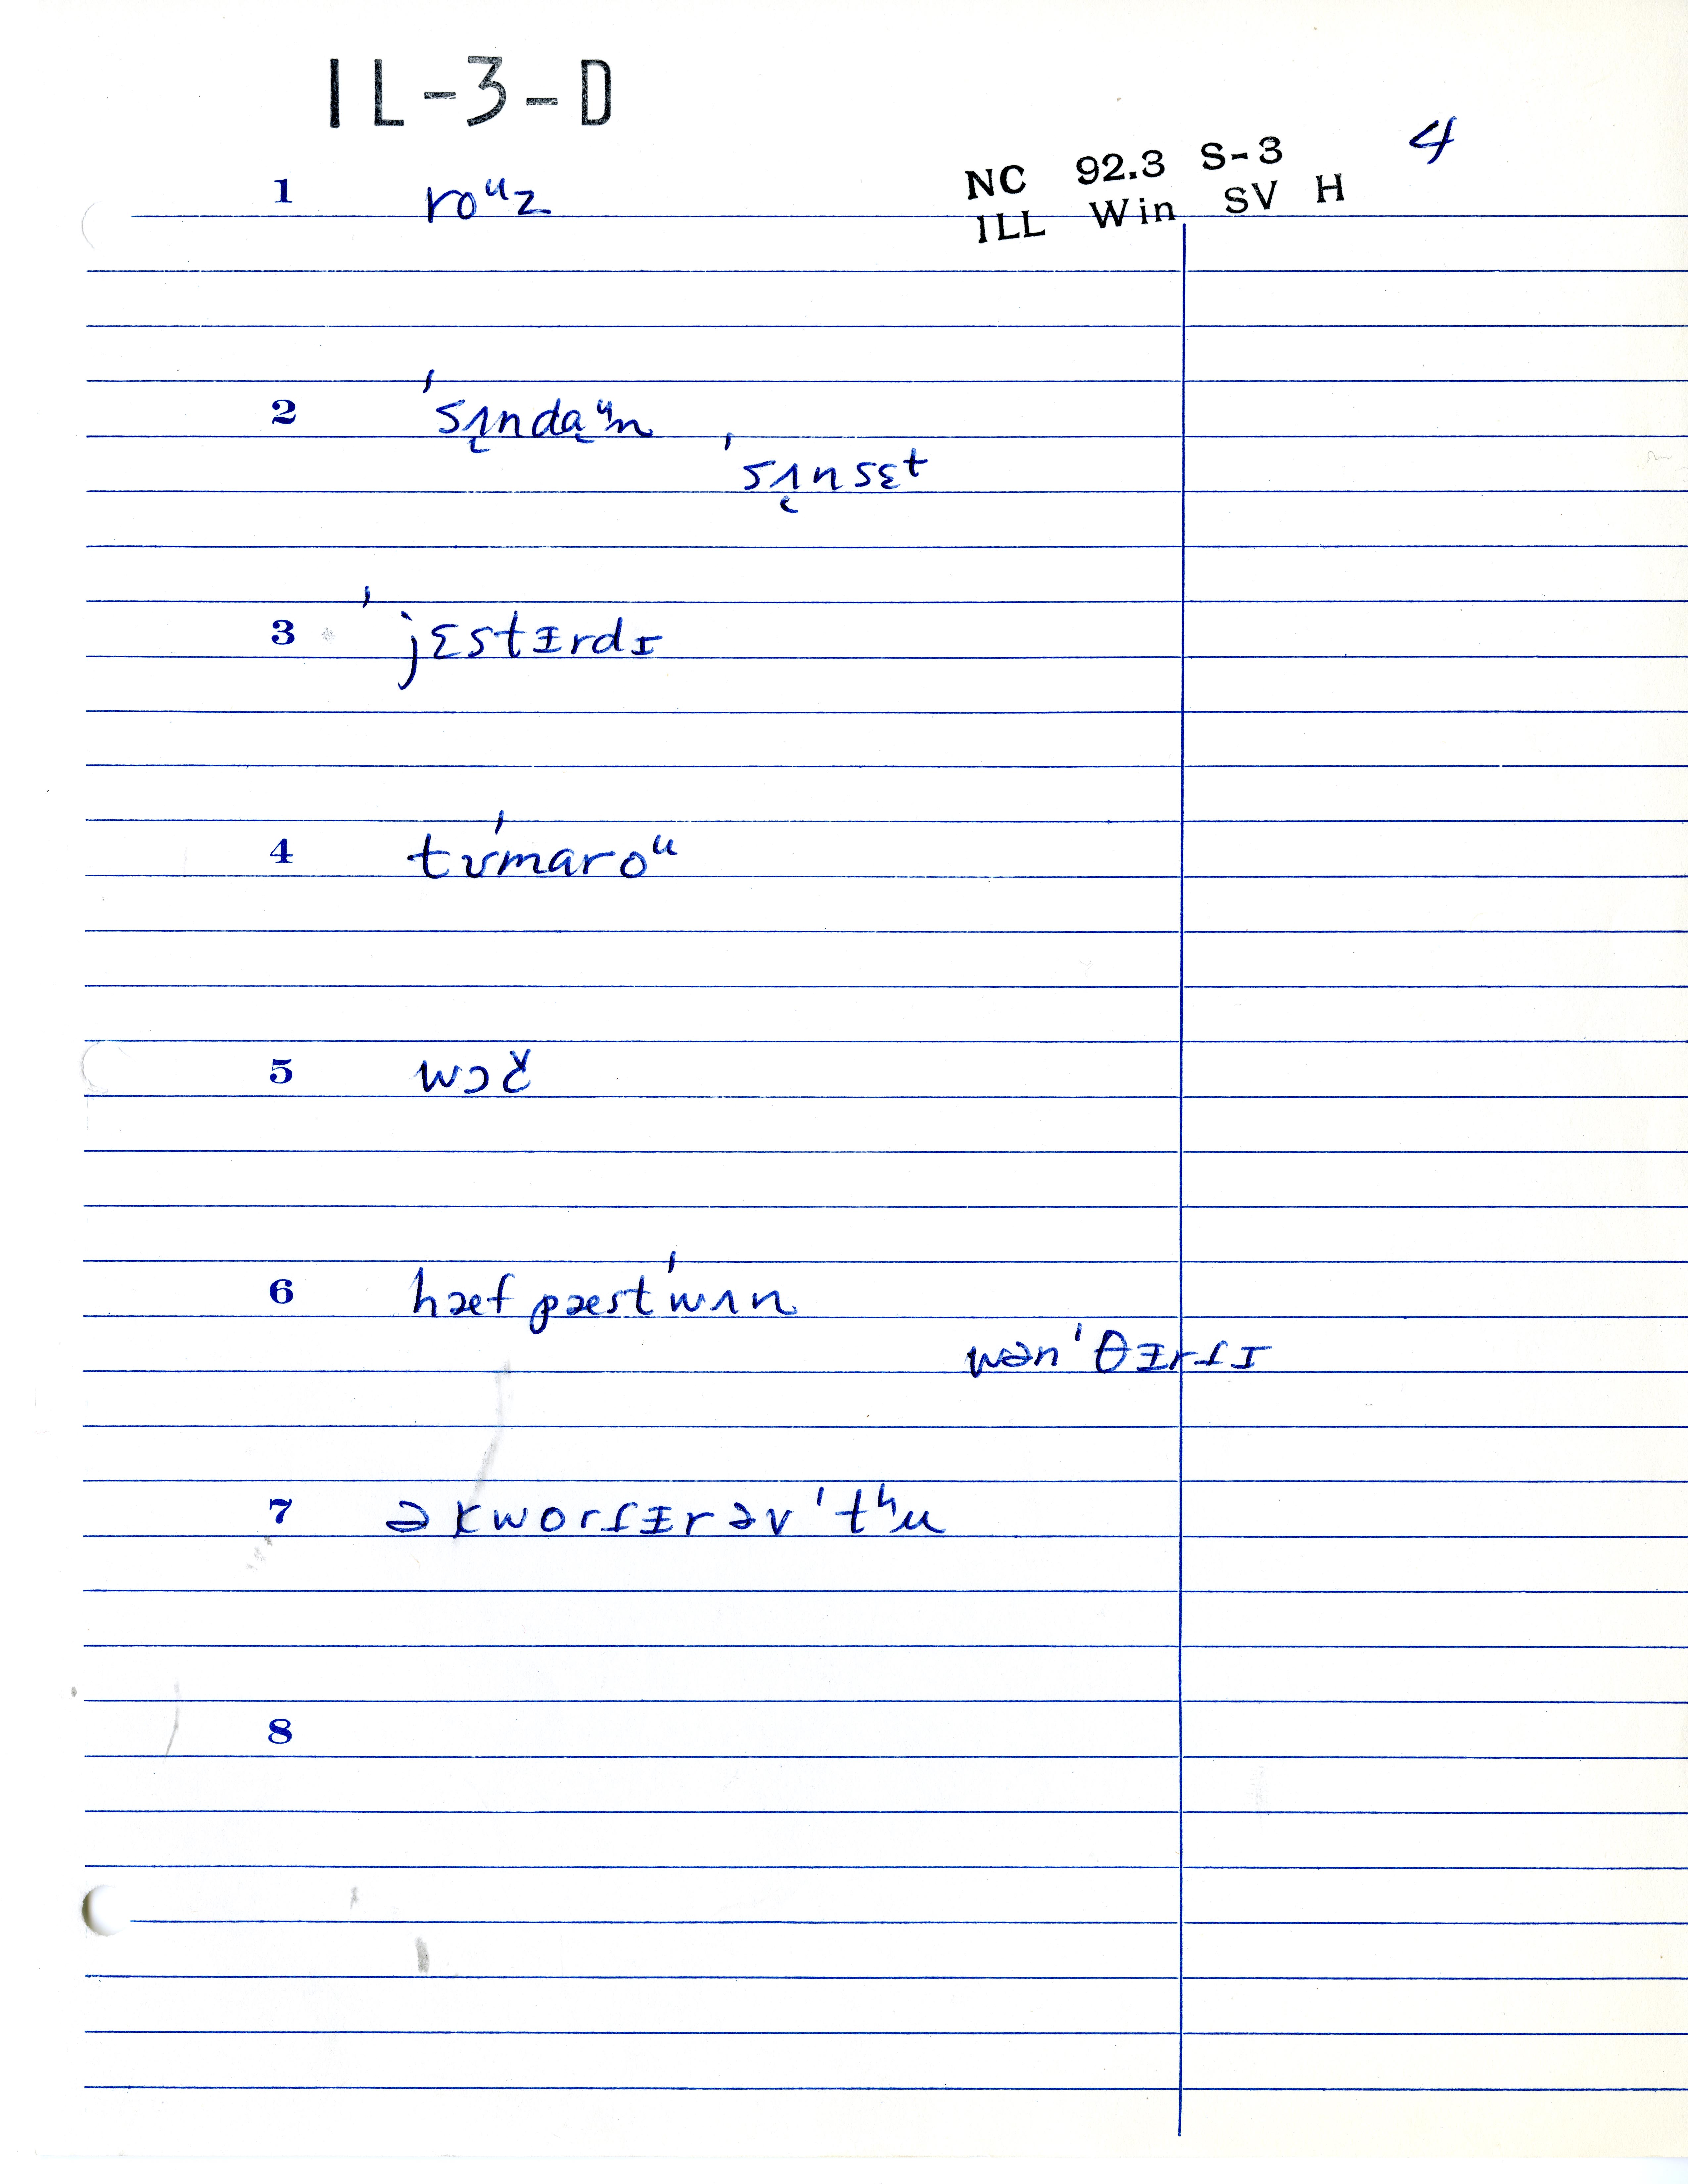 IL-3-D
NC 92.3 S-3 4
ILL Win SV H
1 roᵘz
2 ˈsʌ̨nda̧ᵘn
ˈsʌ̨nsɛt
3 ˈjɛstᵻrdɪ
4 tʊˈmaroᵘ
5 wɔč
6 hæf pæst ˈwʌn
wən ˈθᵻrtɪ
7 ə kwortᵻr əv ˈtʰu
8